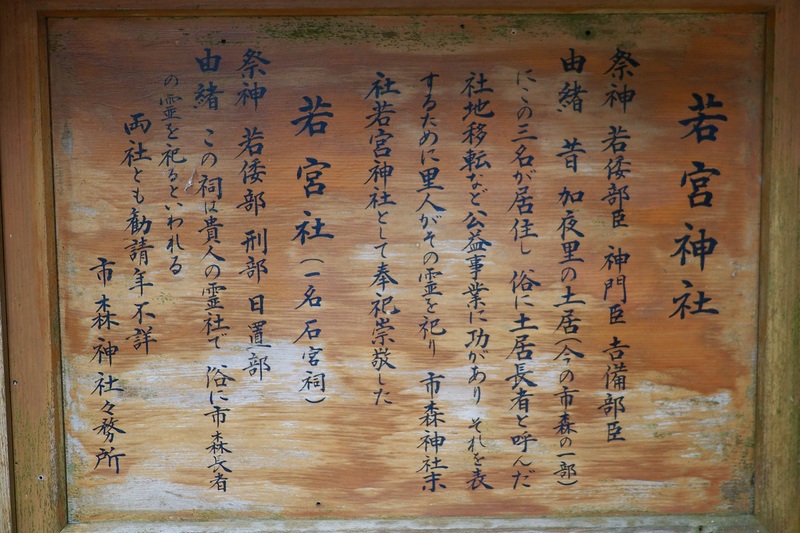 若宮神社
祭神 若倭部臣 神門臣 吉備部臣
由緒 昔 加夜里の土居(今の市森の一部)
にこの三名が居住し 俗に土居長者と呼んだ
社地移転など公益事業に功があり それを表
するために里人がその霊を祀り 市森神社末
社若宮神社として奉祀崇敬した
若宮社(一名 石宮祠)
祭神 若倭部 刑部 日置部
由緒 この祠は貴人の霊社で 俗に市森長者
の霊を祀るといわれる
両社とも勧請年不詳
市森神社々務所